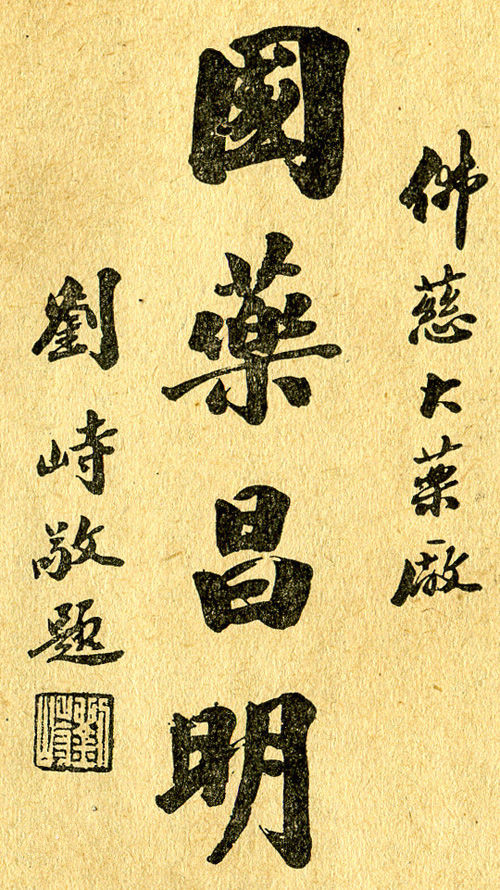 佛慈大藥廠
國藥昌明
劉峙敬題